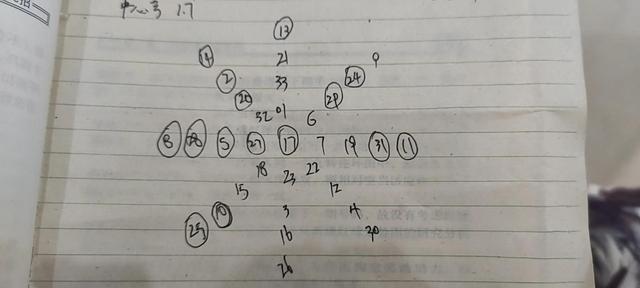 中心号 17
13
14 21 9
2 33 24
20 28
32 01 6
8 28 5 27 17 7 19 31 11
18 23 22
15 12
10 3 4
25 16 30
26